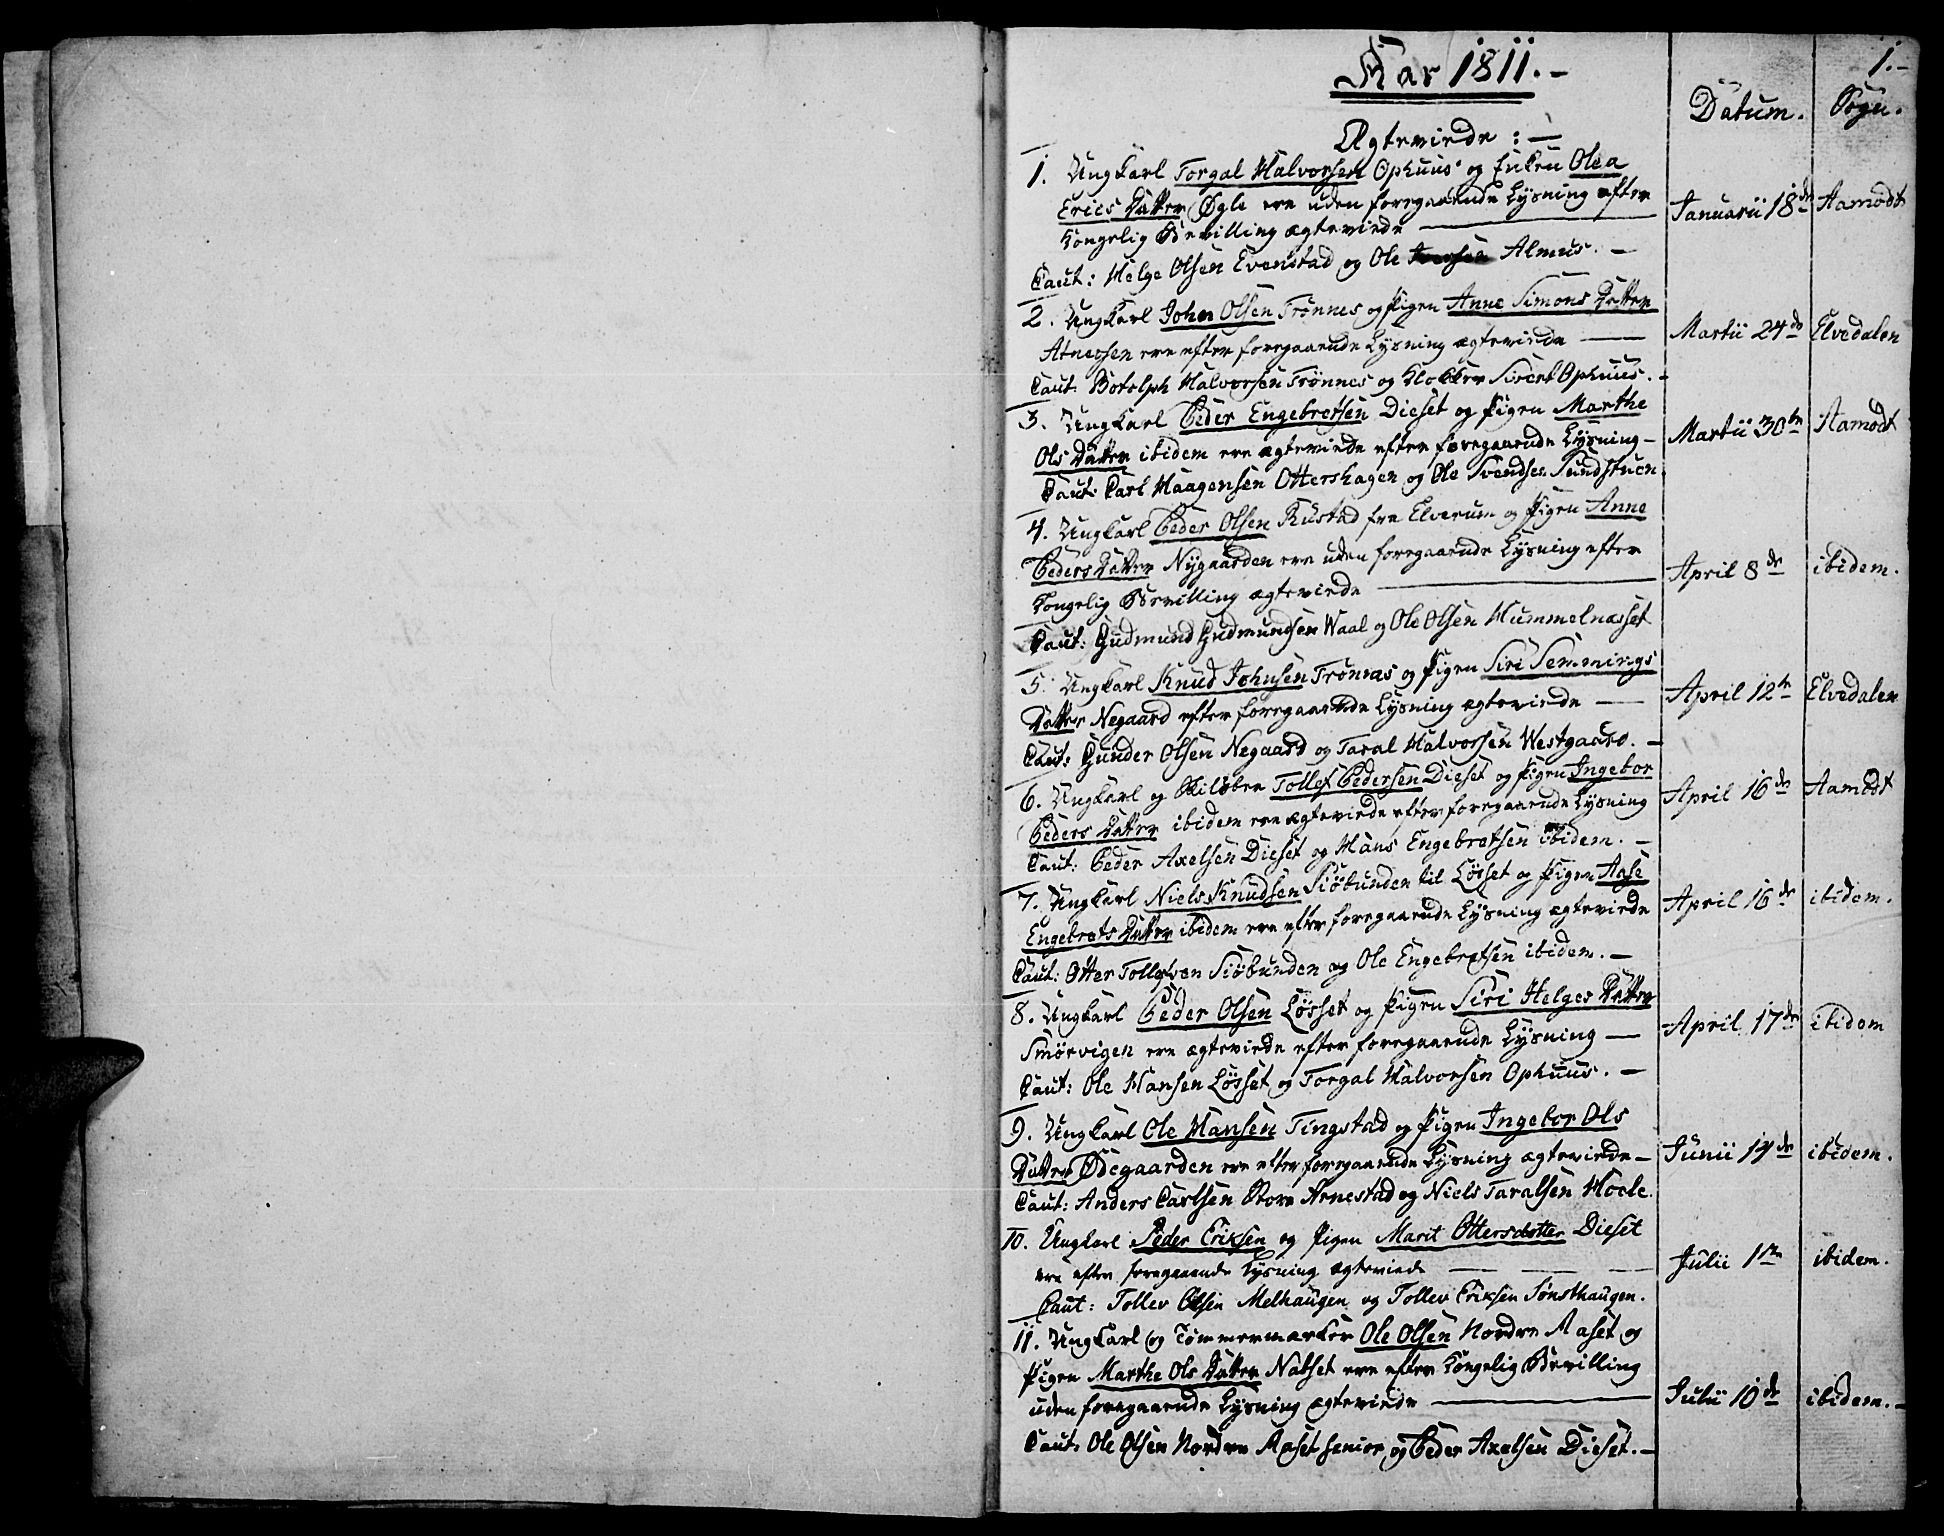 1.-
Aar 1811.-
Datum. Sogn.
Ægteviede :-
1. Ungkarl Torgal Halvorsen Ophuus og Enken Olea
Erics Datter Øgle ere uden foregaaende Lysning efter
Kongelig Bevilling ægteviede
Januarii 18de Aamodt
Caut: Helge Olsen Evenstad og Ole Almus.-
2. Ungkarl John Olsen Trønnes og Pigen Anne Simons Datter
Atneosen ere efter foregaaende Lysning ægteviede
Martii 24de Elvedalen
Caut: Botolph Halvorsen Trønnes og Klokker Sivert Ophuus.-
3. Ungkarl Peder Engebretsen Dieset og Pigen Marthe
Ols Datter ibidem ere ægteviede efter foregaaende Lysning-
Martii 30te Aamodt
Caut: Carl Haagensen Ottershagen og Ole Svendsen Sundstuen.
4. Ungkarl Peder Olsen Rustad fra Elverum og Pigen Anne
Peders Datter Nygaarden ere uden foregaaende Lysning efter
Kongelig Bevilling ægteviede
April 8de ibidem.
Caut: Gudmund Gudmundsen Waal og Ole Olsen Hummelnæsset
5. Ungkarl Knud Johnsen Trønnæs og Pigen Siri Semmings
Datter Negaard efter foregaaende Lysning ægteviede
April 12te Elvedalen
Caut: Gunder Olsen Negaard og Taral Halvorsen Westgaard.-
6. Ungkarl og Skiløber Tollef Pedersen Dieset og Pigen Ingebor
Peders Datter ibidem ere ægteviede efter foregaaende Lysning
April 16de Aamodt
Caut: Peder Axelsen Dieset og Hans Engebretsen ibidem.-
7. Ungkarl Niels Knudsen Siöbunden til Løsset og Pigen Aase
Engebrets Datter ibidem ere efter foregaaende Lysning ægteviede
April 16de ibidem.
Caut: Otter Tollefsen Siöbunden og Ole Engebretsen ibidem.-
8. Ungkarl Peder Olsen Løsset og Pigen Siri Helges Datter
Smörvigen ere ægteviede efter foregaaende Lysning -
April 17de ibidem
Caut: Ole Hansen Løsset og Torgal Halvorsen Ophuus.-
9. Ungkarl Ole Hansen Tingstad og Pigen Ingebor Ols
Datter Ödegaarden ere efter foregaaende Lysning ægteviede-
Junii 14de ibidem.
Caut: Anders Carlsen Store Arnestad og Niels Taralsen Hoele.
10. Ungkarl Peder Eriksen og Pigen Marit Ottersdotter Dieset
ere efter foregaaende Lysning ægteviede
Julii 1te ibidem.
Caut: Tollev Olsen Melhaugen og Tollev Eriksen Sønsthaugen.
11. Ungkarl og Tømmermærker Ole Olsen Nordre Aaset og
Pigen Marthe Ols Datter Nabset ere efter Kongelig Bevilling
uden foregaaende Lysning ægteviede
Julii 10de ibidem.-
Caut: Ole Olsen Nordre Aaset senior og Peder Axelsen Dieset.-